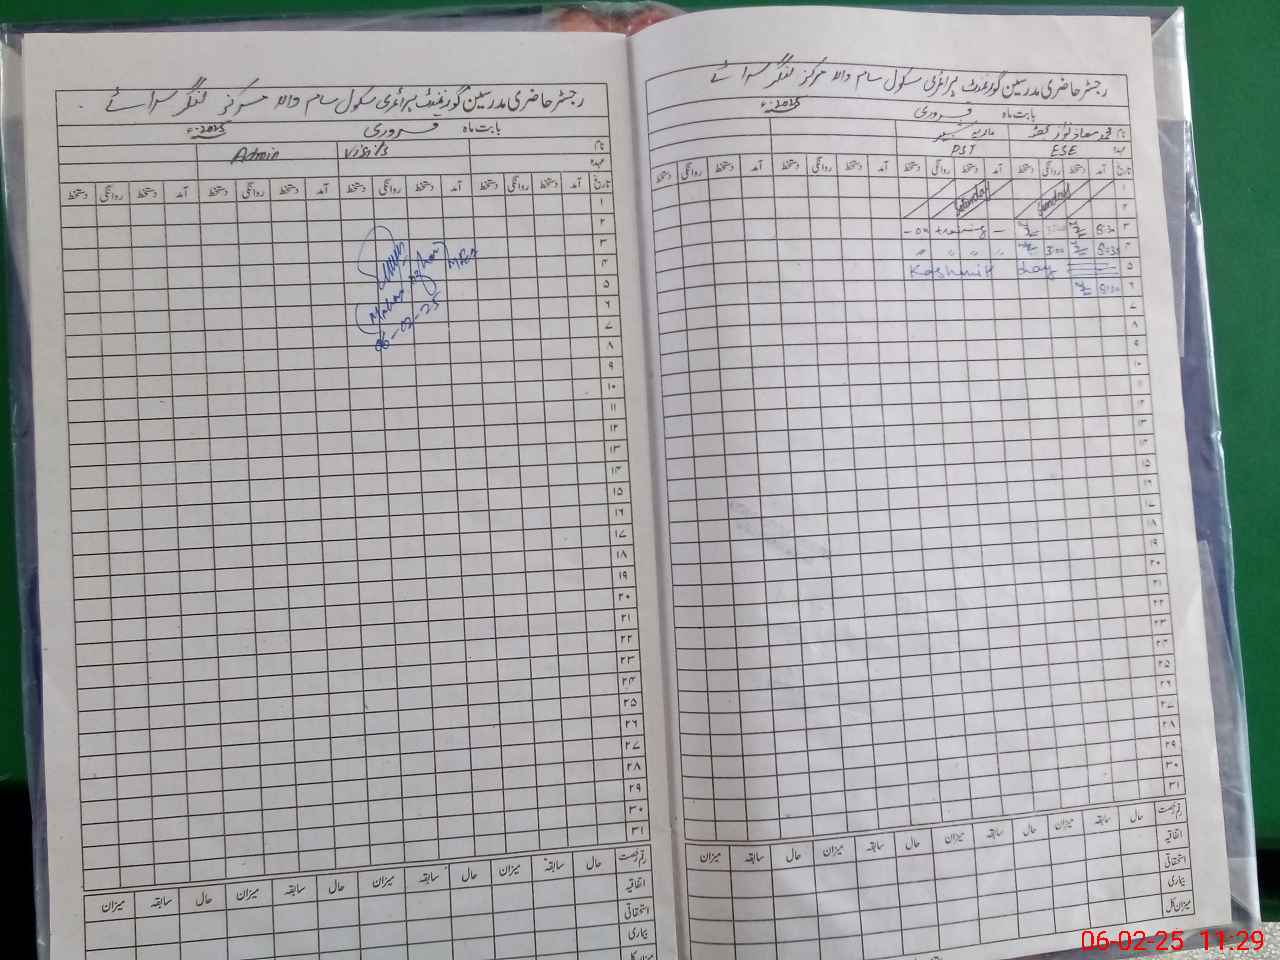 رجسٹر حاضری مدرسین گورنمنٹ پرائمری سکول سام والا مرکز لنگر سرائے
بابت ماہ فروری 2025ء
نام
عہدہ Visits Admin
تاریخ آمد دستخط روانگی دستخط آمد دستخط روانگی دستخط آمد دستخط روانگی دستخط آمد دستخط روانگی دستخط
۱
۲
۳
۴
۵
۶
۷
۸
۹
۱۰
۱۱
۱۲
۱۳
۱۴
۱۵
۱۶
۱۷
۱۸
۱۹
۲۰
۲۱
۲۲
۲۳
۲۴
۲۵
۲۶
۲۷
۲۸
۲۹
۳۰
۳۱
MEA
06-02-25
رقم رخصت حال سابقہ میزان حال سابقہ میزان حال سابقہ میزان حال سابقہ میزان
اتفاقیہ
استحقاقی
بیماری
میزان کل
رجسٹر حاضری مدرسین گورنمنٹ پرائمری سکول سام والا مرکز لنگر سرائے
بابت ماہ فروری 2025ء
نام محمد سعاد نواز
عہدہ ESE PST
تاریخ آمد دستخط روانگی دستخط آمد دستخط روانگی دستخط آمد دستخط روانگی دستخط آمد دستخط روانگی دستخط
۱ Saturday
۲ Sunday
۳ 8:30 - on training -
۴ 8:30 3:00 " " "
۵ Kashmir day
۶ 8:30
۷
۸
۹
۱۰
۱۱
۱۲
۱۳
۱۴
۱۵
۱۶
۱۷
۱۸
۱۹
۲۰
۲۱
۲۲
۲۳
۲۴
۲۵
۲۶
۲۷
۲۸
۲۹
۳۰
۳۱
رقم رخصت حال سابقہ میزان حال سابقہ میزان حال سابقہ میزان حال سابقہ میزان
اتفاقیہ
استحقاقی
بیماری
میزان کل
06-02-25 11:29